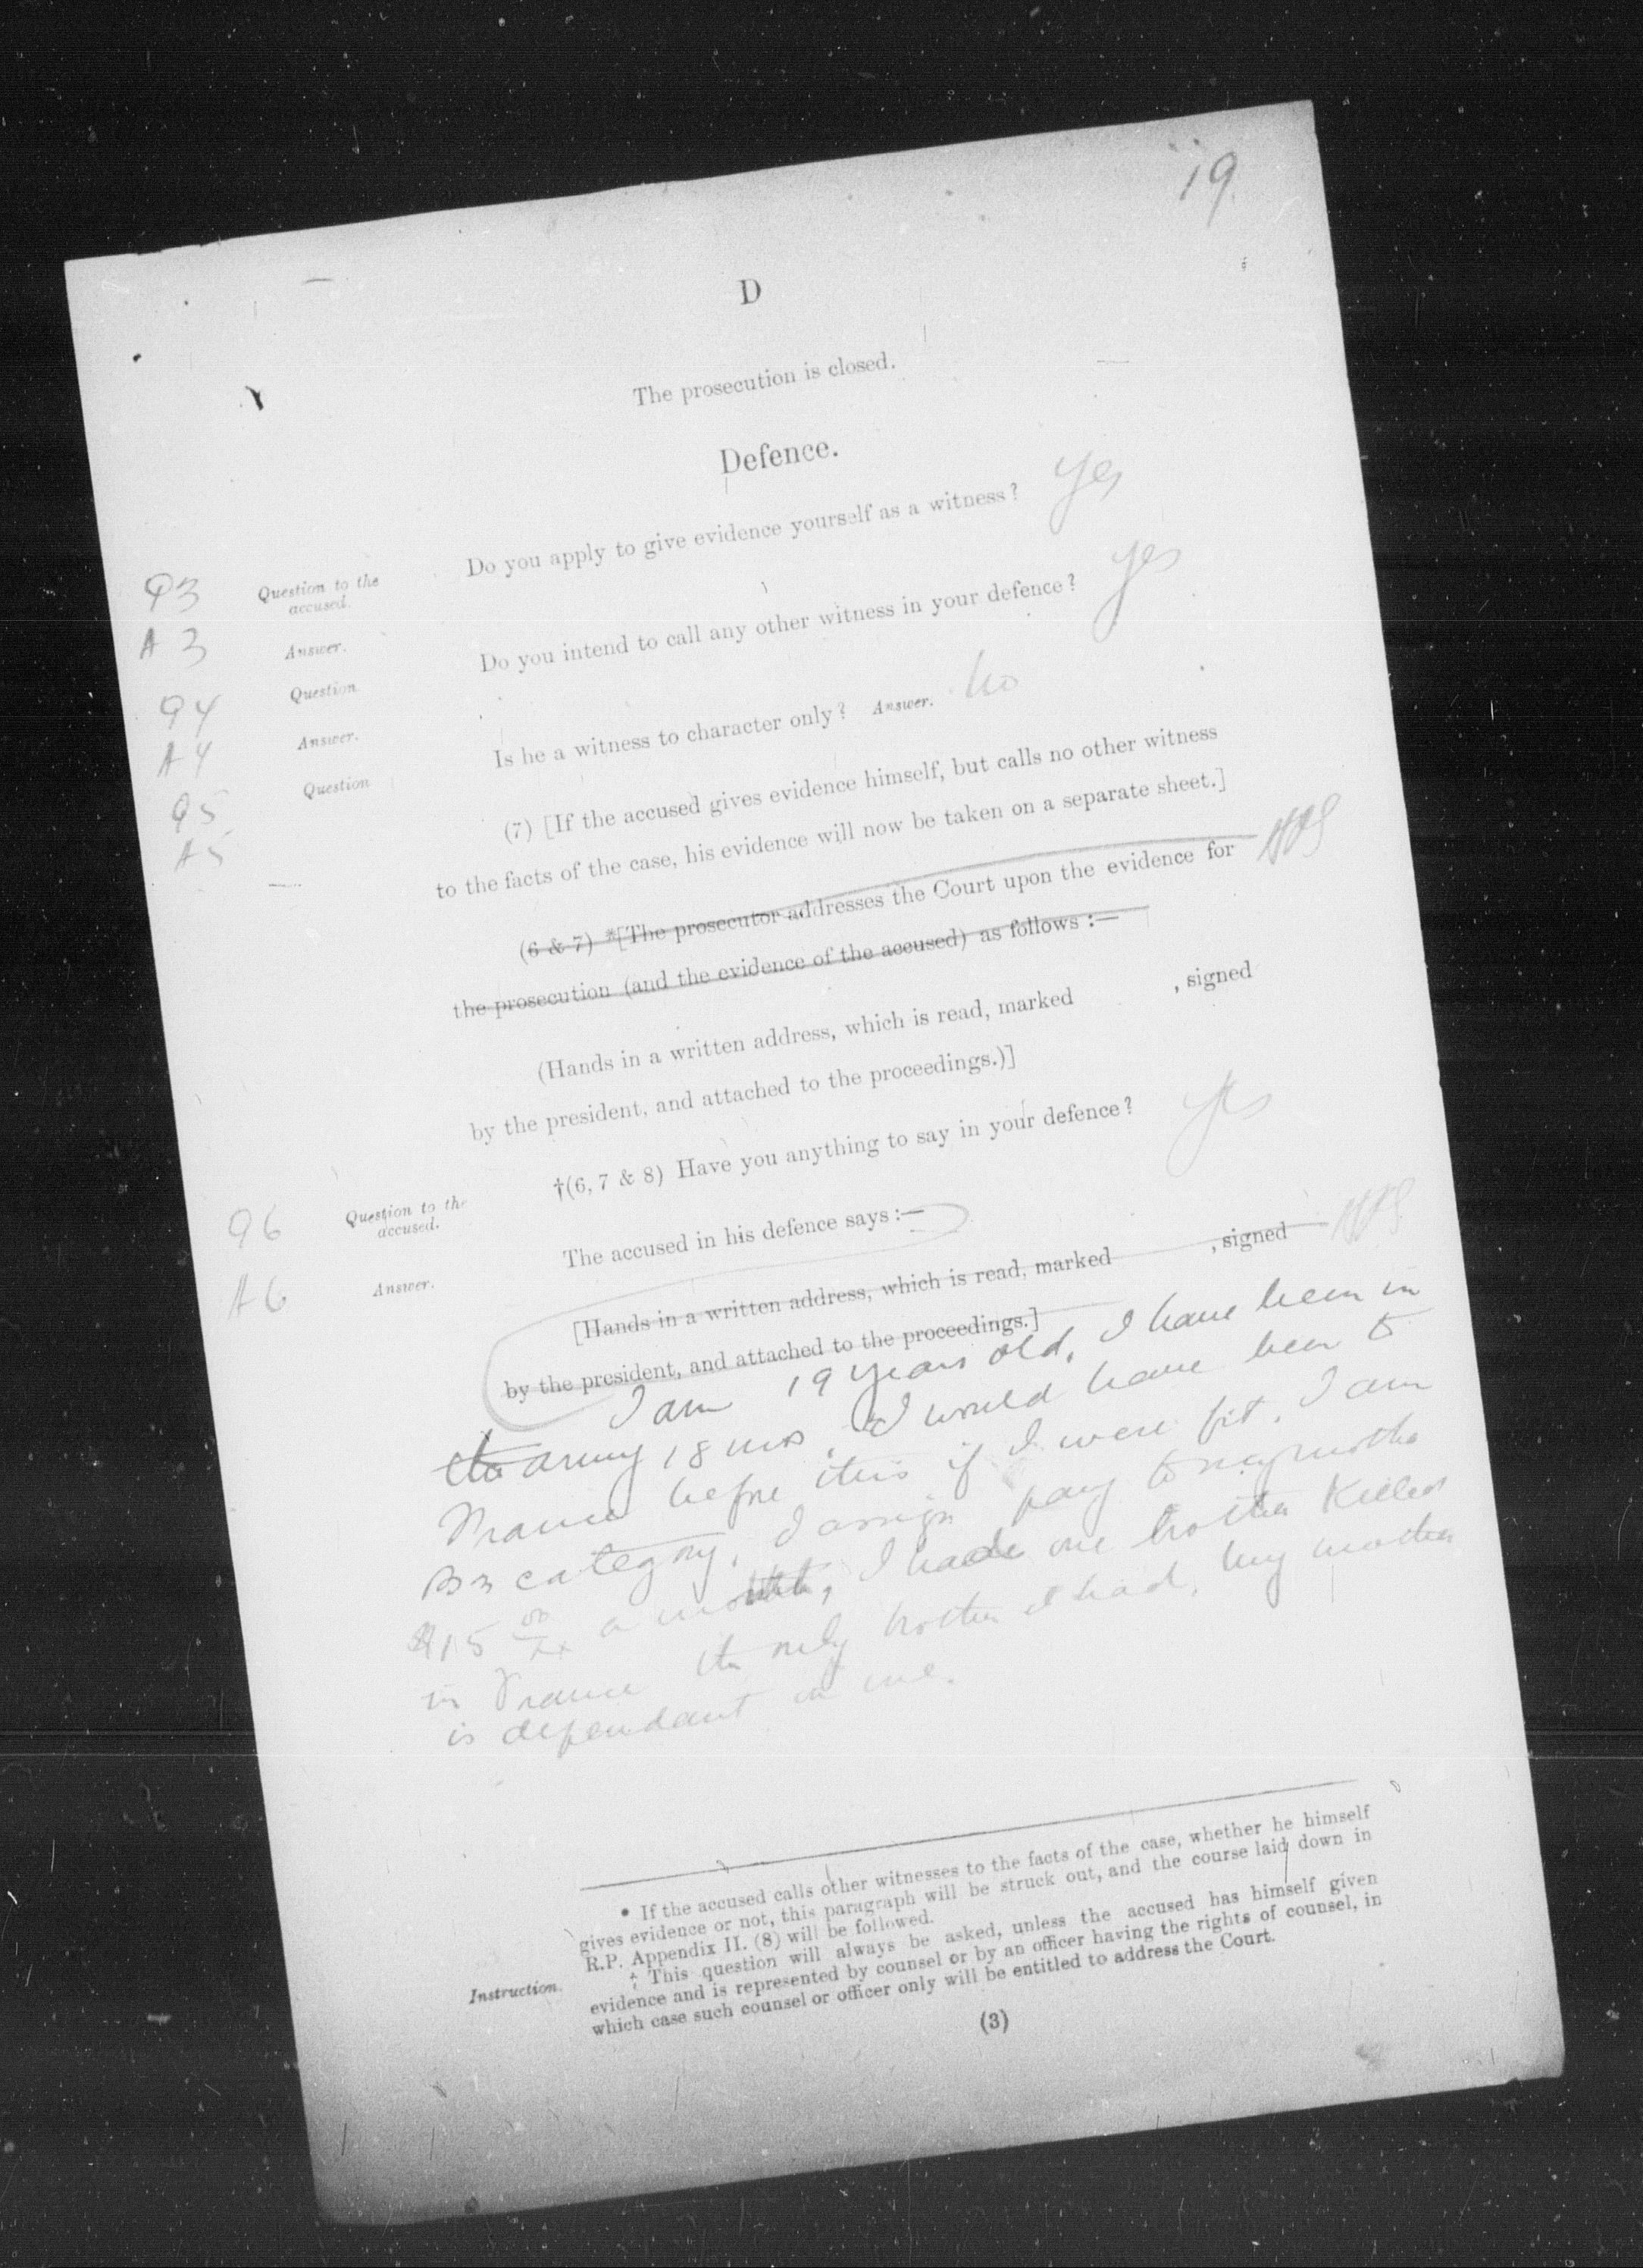 19
D
The prosecution is closed.
Defence.
Q3 Question to the accused. Do you apply to give evidence yourself as a witness? Yes
A 3 Answer.
Q4 Question Do you intend to call any other witness in your defence? Yes
A4 Answer.
Q5 Question Is he a witness to character only? Answer. No
A5
(7) [If the accused gives evidence himself, but calls no other witness
to the facts of the case, his evidence will now be taken on a separate sheet.]
(6 & 7) *[The prosecutor addresses the Court upon the evidence for
the prosecution (and the evidence of the accused) as follows :—
(Hands in a written address, which is read, marked , signed
by the president, and attached to the proceedings.)]
Q6 Question to the accused. †(6, 7 & 8) Have you anything to say in your defence? Yes
A6 Answer. The accused in his defence says :—
[Hands in a written address, which is read, marked , signed
by the president, and attached to the proceedings.]
I am 19 years old. I have been in
the army 18 mos. I would have been to
France before this if I were fit. I am
B3 category. I assign pay to my mother
$15 00/xx a month, I had one brother killed
in France the only brother I had. my mother
is dependant on me.
* If the accused calls other witnesses to the facts of the case, whether he himself
gives evidence or not, this paragraph will be struck out, and the course laid down in
R.P. Appendix II. (8) will be followed.
Instruction. † This question will always be asked, unless the accused has himself given
evidence and is represented by counsel or by an officer having the rights of counsel, in
which case such counsel or officer only will be entitled to address the Court.
(3)